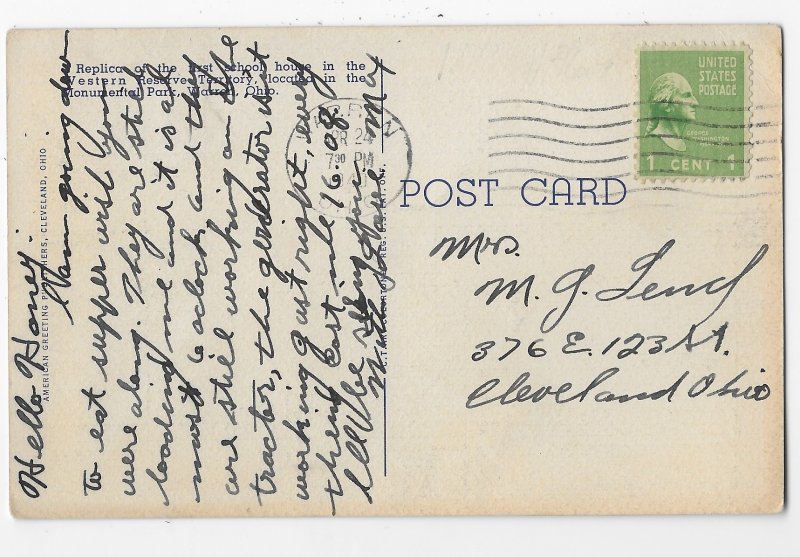 Replica of the first school house in the
Western Reserve Territory, located in the
Monumental Park, Warren, Ohio.
AMERICAN GREETING PUBLISHERS, CLEVELAND, OHIO
Hello Honey:
I am going down
to eat supper wish you
were along. They are still
loading me and it is al
most 6 oclock and they
are still working on the
tractor, the generator isnt
working just right, every
thing cost me 16.08
I'll be seeing you
with love Ma
WARREN
24
7 30 PM
POST CARD
UNITED
STATES
POSTAGE
GEORGE
WASHINGTON
1 CENT 1
Mrs.
M. G.
376 E. 123 St.
Cleveland Ohio